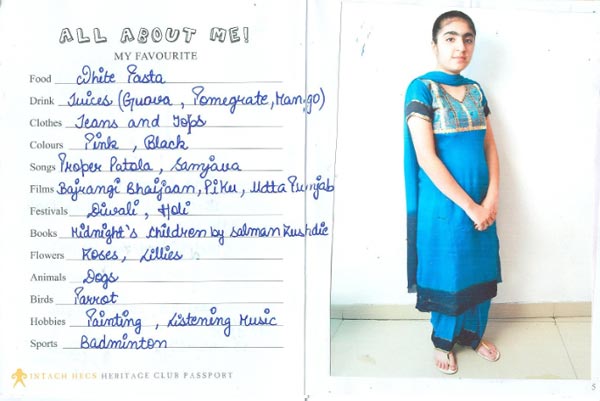 ALL ABOUT ME!
MY FAVOURITE
Food White Pasta
Drink Juices (Guava, Pomegrate, Mango)
Clothes Jeans and Tops
Colours Pink, Black
Songs Proper Patola, Samjava
Films Bajrangi Bhaijaan, Piku, Udta Punjab
Festivals Diwali, Holi
Books Midnight's Children by Salman Rushdie
Flowers Roses, Lillies
Animals Dogs
Birds Parrot
Hobbies Painting, Listening Music
Sports Badminton
INTACH HECS HERITAGE CLUB PASSPORT
5